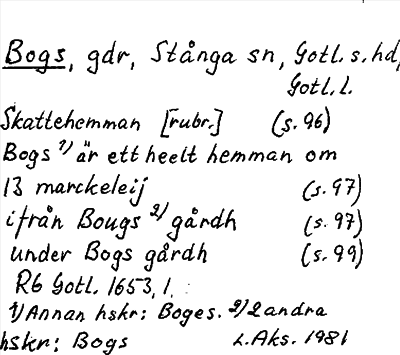 Bogs, gdr, Stånga sn, Gotl. s. hd,
Gotl. l.
Skattehemman [rubr.] (s. 96)
Bogs 1) är ett heelt hemman om
13 marckeleij (s. 97)
ifrån Bougs 2) gårdh (s. 97)
under Bogs gårdh (s. 99)
Rb Gotl. 1653, 1.
1) Annan hskr: Boges. 2) 2 andra
hskr: Bogs L. Aks. 1981